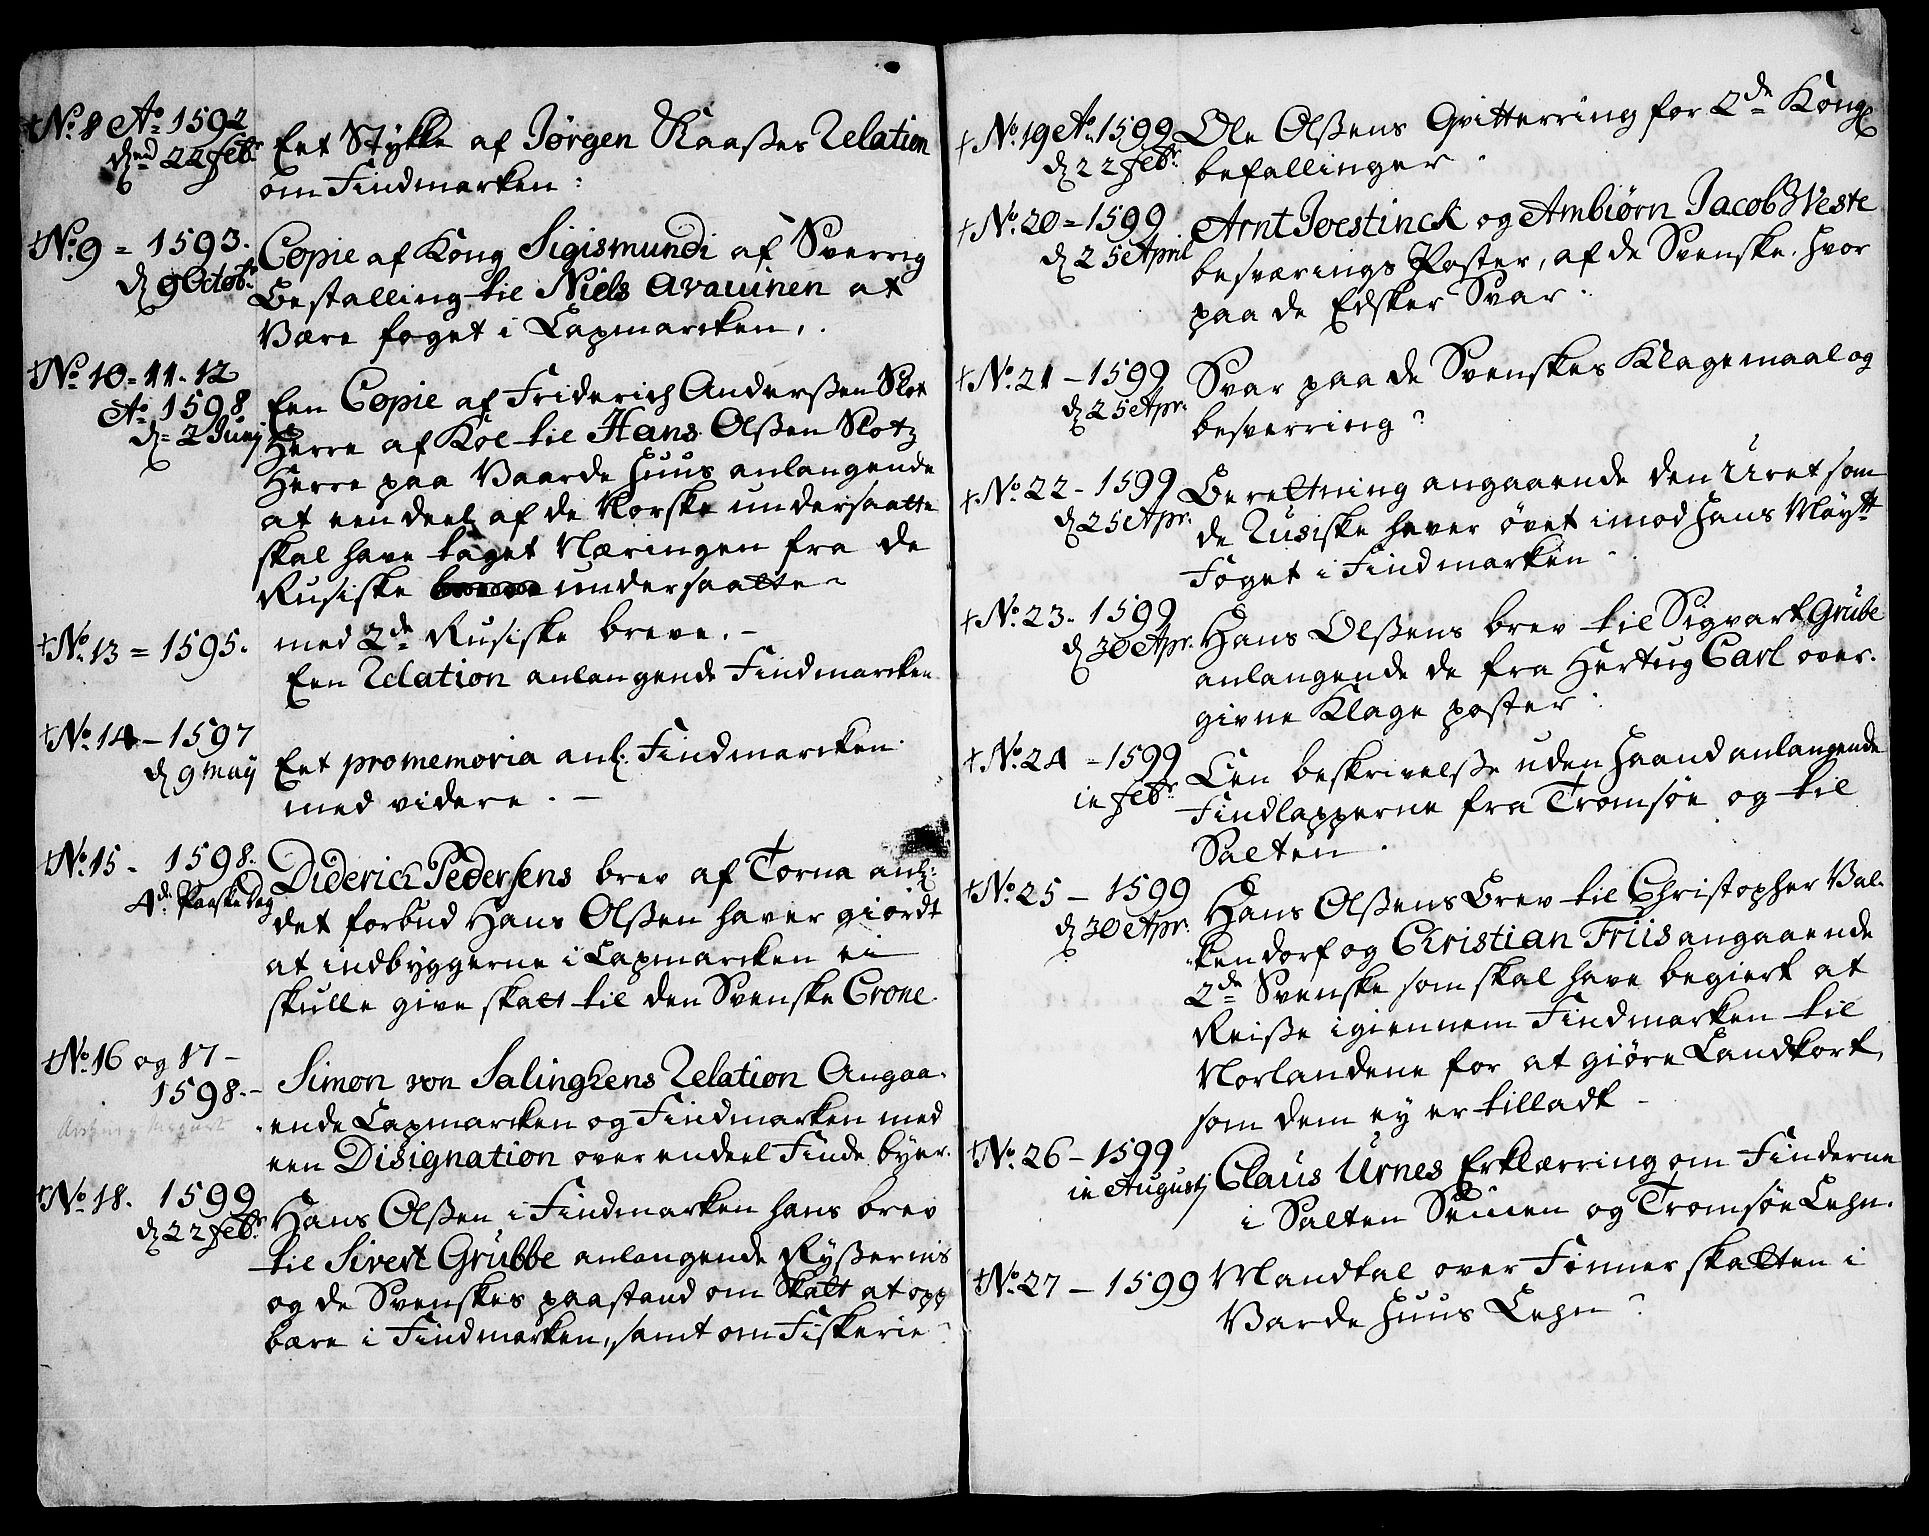 †No. 8 Ao. 1592
d. 22 Febr.
Eet Stykke af Jørgen Kaaßes Relation
om Findmarken:
†No. 9 = 1593.
d. 9 Octob.
Copie af Kong Sigismundi af Sverrig
Bestalling til Niels
at
Være foget i Lapmarcken.
†No. 10 = 11 - 12
Ao. 1598
d. 2 Junij
Een Copie af Friderich Anderßen Slot
Herre af Kol til Hans Olßen Slotz
Herre paa Vaarde Huus anlangende
at een deel af de Norske undersaatte
skal have taget Næringen fra de
Rusiske undersaatte
med 2de Rusiske breve. –
†No. 13 = 1595.
Een Relation anlangende Findmarcken
†No. 14 – 1597
d. 9 Maij
Eet promemoria anl. Findmarcken
med videre. –
†No. 15 - 1598.
4de Paaske Dag
Diderich Pedersens brev af Torna anl:
det forbud Hans Olßen haver giordt
at indbyggerne i Lapmarcken ei
skulle give skatt til den Svenske Crone.
†No. 16 og 17 –
1598. –
Simon von Salinghens Relation Angaa-
ende Lapmarcken og Findmarken med
een Disignation over endeel Finde byer.
†No. 18. 1599
d. 22 Febr.
Hans Olßen i Findmarken hans brev
til Sivert Grubbe anlangende Ryßernis
og de Svenskes paastand om Skatt at opp
bære i Findmarken, samt om Fiskerie
†No. 19 Ao. 1599
d. 22 Febr.
Ole Olßens Qvitterring for 2de Kongl.
befallinger
†No. 20 = 1599
d. 25 April
Arnt Joestinck og Ambiørn Jacob Weste
besværings Poster, af de Svenske, hvor
paa de Edsker Svar.
†No. 21 – 1599
d. 25 Apr.
Svar paa de Svenskes Klagemaal og
besverring
†No. 22 - 1599
d. 25 Apr.
Berettning angaaende den Uret som
de Rusiske haver øvet imod Hans Maytt
Foget i Findmarken
†No. 23. 1599
d. 30 Apr.
Hans Olßens brev til Sigvart Grube
anlangende de fra Hertug Carl over-
givne Klage poster
†No. 24 = 1599
in Febr.
Een beskrivelße uden Haand anlangende
Findlapperne fra Tromsøe og til
Salten.
†No. 25 – 1599
d. 30 Apr.
Hans Olßens Brev til Christopher Val-
kendorf og Christian Friis angaaende
2de Svenske som skal have begiert at
Reiße igiennem Findmarken til
Norlandene for at giøre Landkort,
som dem ey er tilladt –
†No. 26 – 1599
in Augustj
Claus Urnes Erklærring om Finderne
i Salten Senien og Tromsøe Lehn.
†No. 27 – 1599
Mandtal over Finner skatten i
Varde Huus Lehn